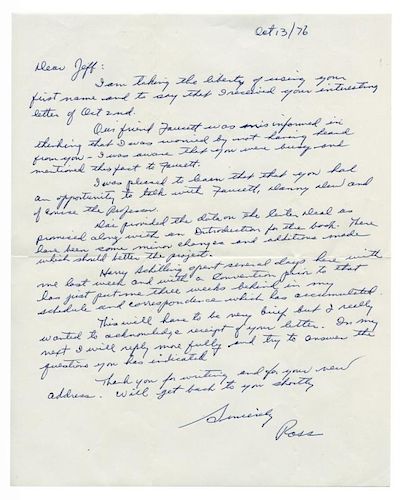 Oct 13/76
Dear Jeff:
I am taking the liberty of using your
first name and to say that I received your interesting
letter of Oct 2nd.
Our friend Faucett was misinformed in
thinking that I was worried by not having heard
from you - I was aware that you were busy and
mentioned this fact to Faucett.
I was pleased to learn that that you had
an opportunity to talk with Faucett, Danny Dew and
of course the Professor.
Dai provided the data on the Center Deal as
promised along with an Introduction for the book. There
have been some minor changes and additions made
which should better the project.
Harry Schilling spent several days here with
me last week and with a Convention prior to that
has just put me three weeks behind in my
schedule and correspondence which has accumulated
This will have to be very brief but I really
wanted to acknowledge receipt of your letter. In my
next I will reply more fully and try to answer the
questions you has indicated
Thank you for writing and for your new
address. Will get back to you shortly
Sincerely
Ross